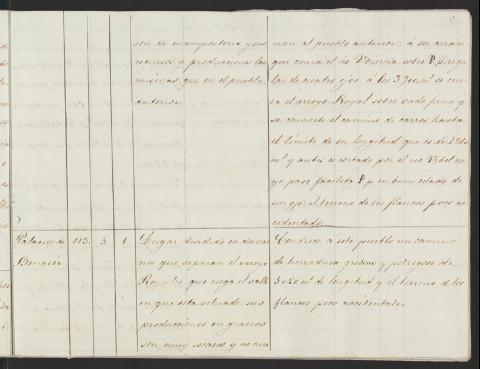 son de mamposteria y sus
recursos y producciones las
mismas que en el pueblo
anterior.
nan al pueblo anterior: á su arran
que cruza el rio sobre P.p. regu
lar de cuatro ojos: á los 3,700 m.s se cru
za el arroyo Royal sobre vado firme y
se convierte el camino de carros hasta
el límite de su longitud que es de
m.s y antes es cortado por el rio Ubel cu
yo paso facilita P.p. en buen estado de
un ojo: el terreno de los flancos poco ac
cidentado.
Palacios de
Benaver
113. 5. 1
Lugar dividido en dos var
rios que separan el arroyo
Royales que riega el valle
en que esta situado: sus
producciones en granos
son muy escasas y no cuen
Conduce á este pueblo un camino
de herradura gredoso y pedregoso de
5020 m.s de longitud y el terreno de los
flancos poco accidentado.